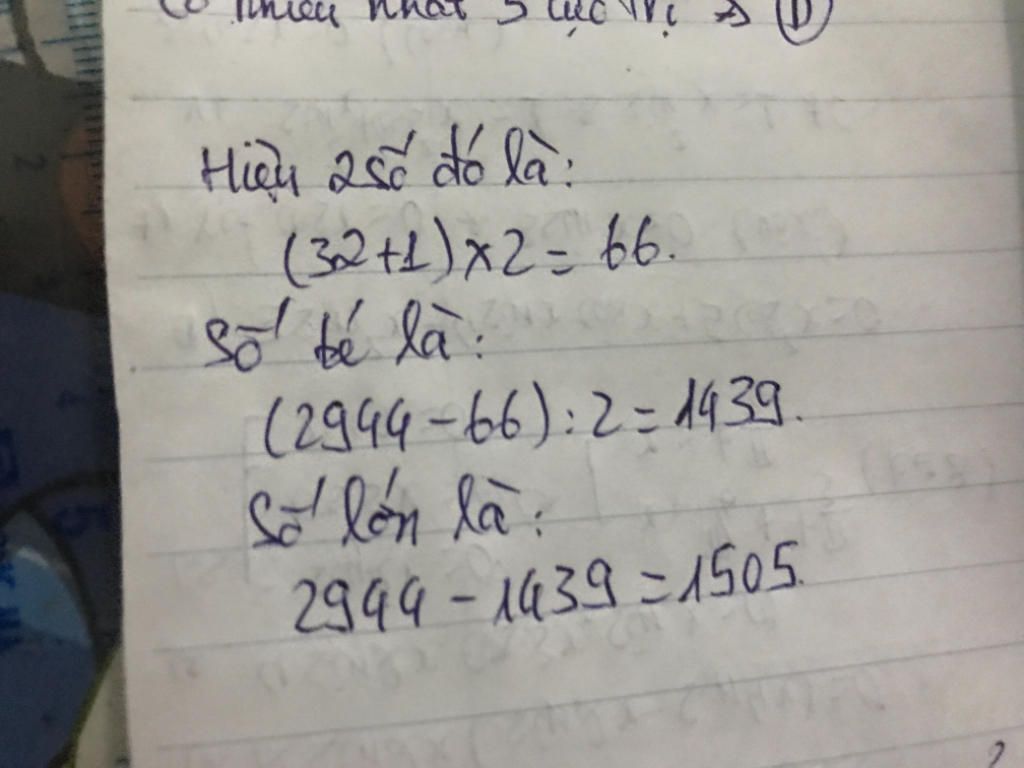 có nhiều nhất 5 cực trị => D
Hiệu 2 số đó là:
(32+1)×2= 66.
Số bé là:
(2944-66):2=1439.
Số lớn là:
2944-1439=1505.